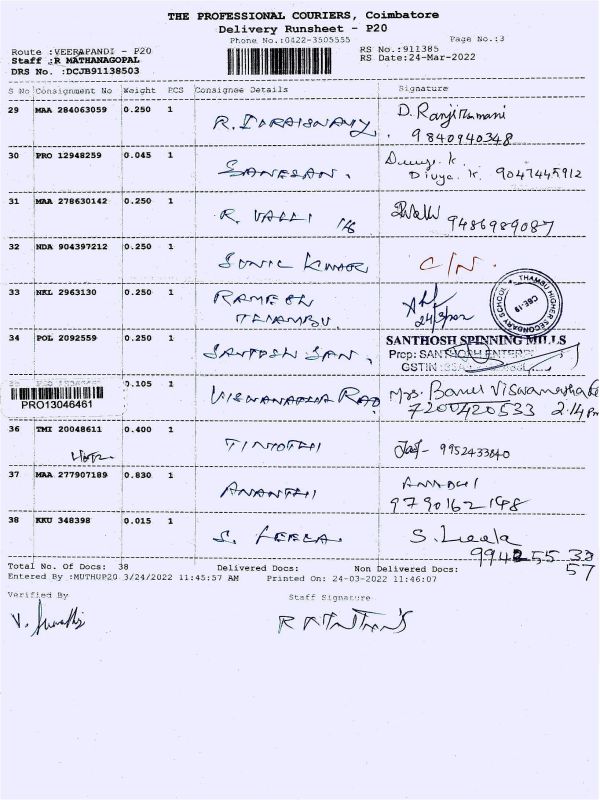 THE PROFESSIONAL COURIERS, Coimbatore
Delivery Runsheet - P20
Phone No.:0422-3505555 Page No.:3
Route :VEERAPANDI - P20 RS No.:911385
Staff :R MATHANAGOPAL RS Date:24-Mar-2022
DRS No. :DCJB91138503
S No Consignment No Weight PCS Consignee Details Signature
29 MAA 284063059 0.250 1 R. DORAISWAMY D. Ranjithamani
9840940348
30 PRO 12948259 0.045 1 GANESAN. Divya. K. 9047445912
31 MAA 278630142 0.250 1 R. VALLI Valli 9486989087
32 NDA 904397212 0.250 1 SUNIL KUMAR C/N.
33 NKL 2963130 0.250 1 RAMESH
THAMBU. 24/3/22
THAMBU HIGHER SECONDARY SCHOOL
CBE-19
34 POL 2092559 0.250 1 SANTOSH SAN. SANTHOSH SPINNING MILLS
Prop: SANTHOSH ENTERPRI
GSTIN
PRO13046461 0.105 1 VISWANATHA RAO Mrs. Banu Viswanatha
7200420533 2.14 Pm
36 TMI 20048611 0.400 1 TIMOTHI 9952433840
37 MAA 277907189 0.830 1 ANANTHI
9790162148
38 KKU 348398 0.015 1 S. LEELA. S. Leela
994255 33
57
Total No. Of Docs: 38 Delivered Docs: Non Delivered Docs:
Entered By :MUTHUP20 3/24/2022 11:45:57 AM Printed On: 24-03-2022 11:46:07
Verified By Staff Signature